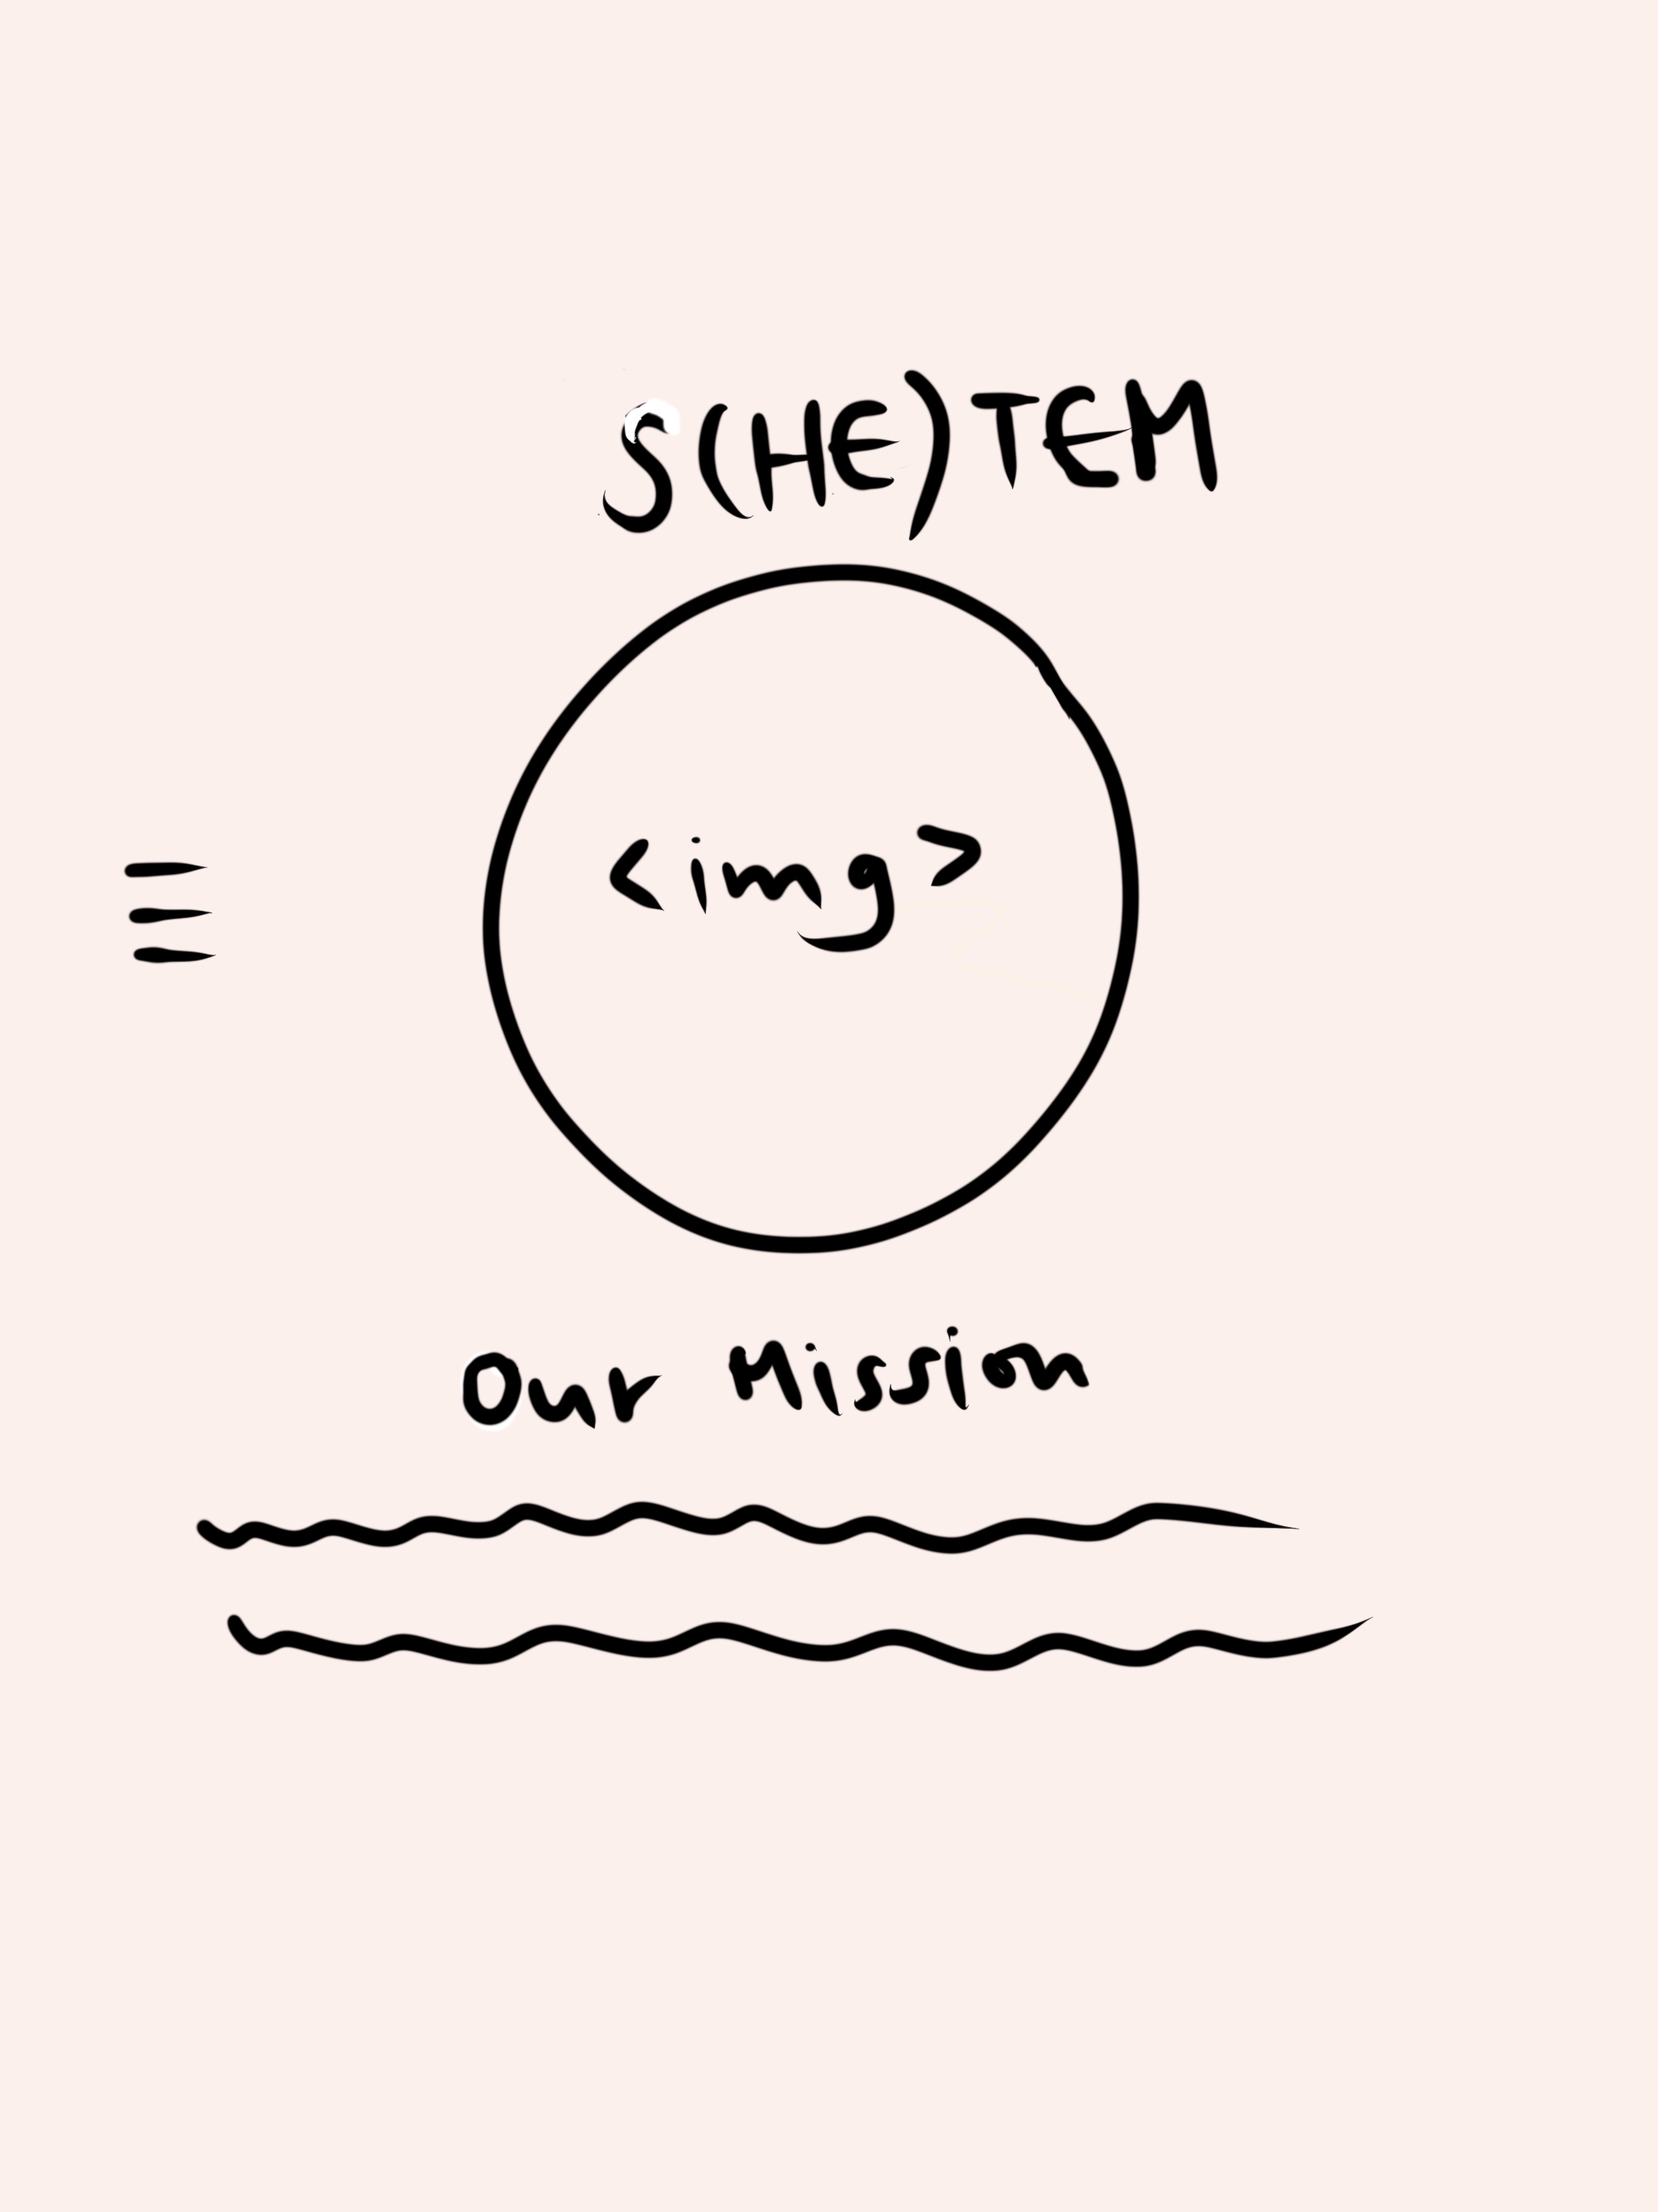 S(HE)TEM
<img>
Our Mission